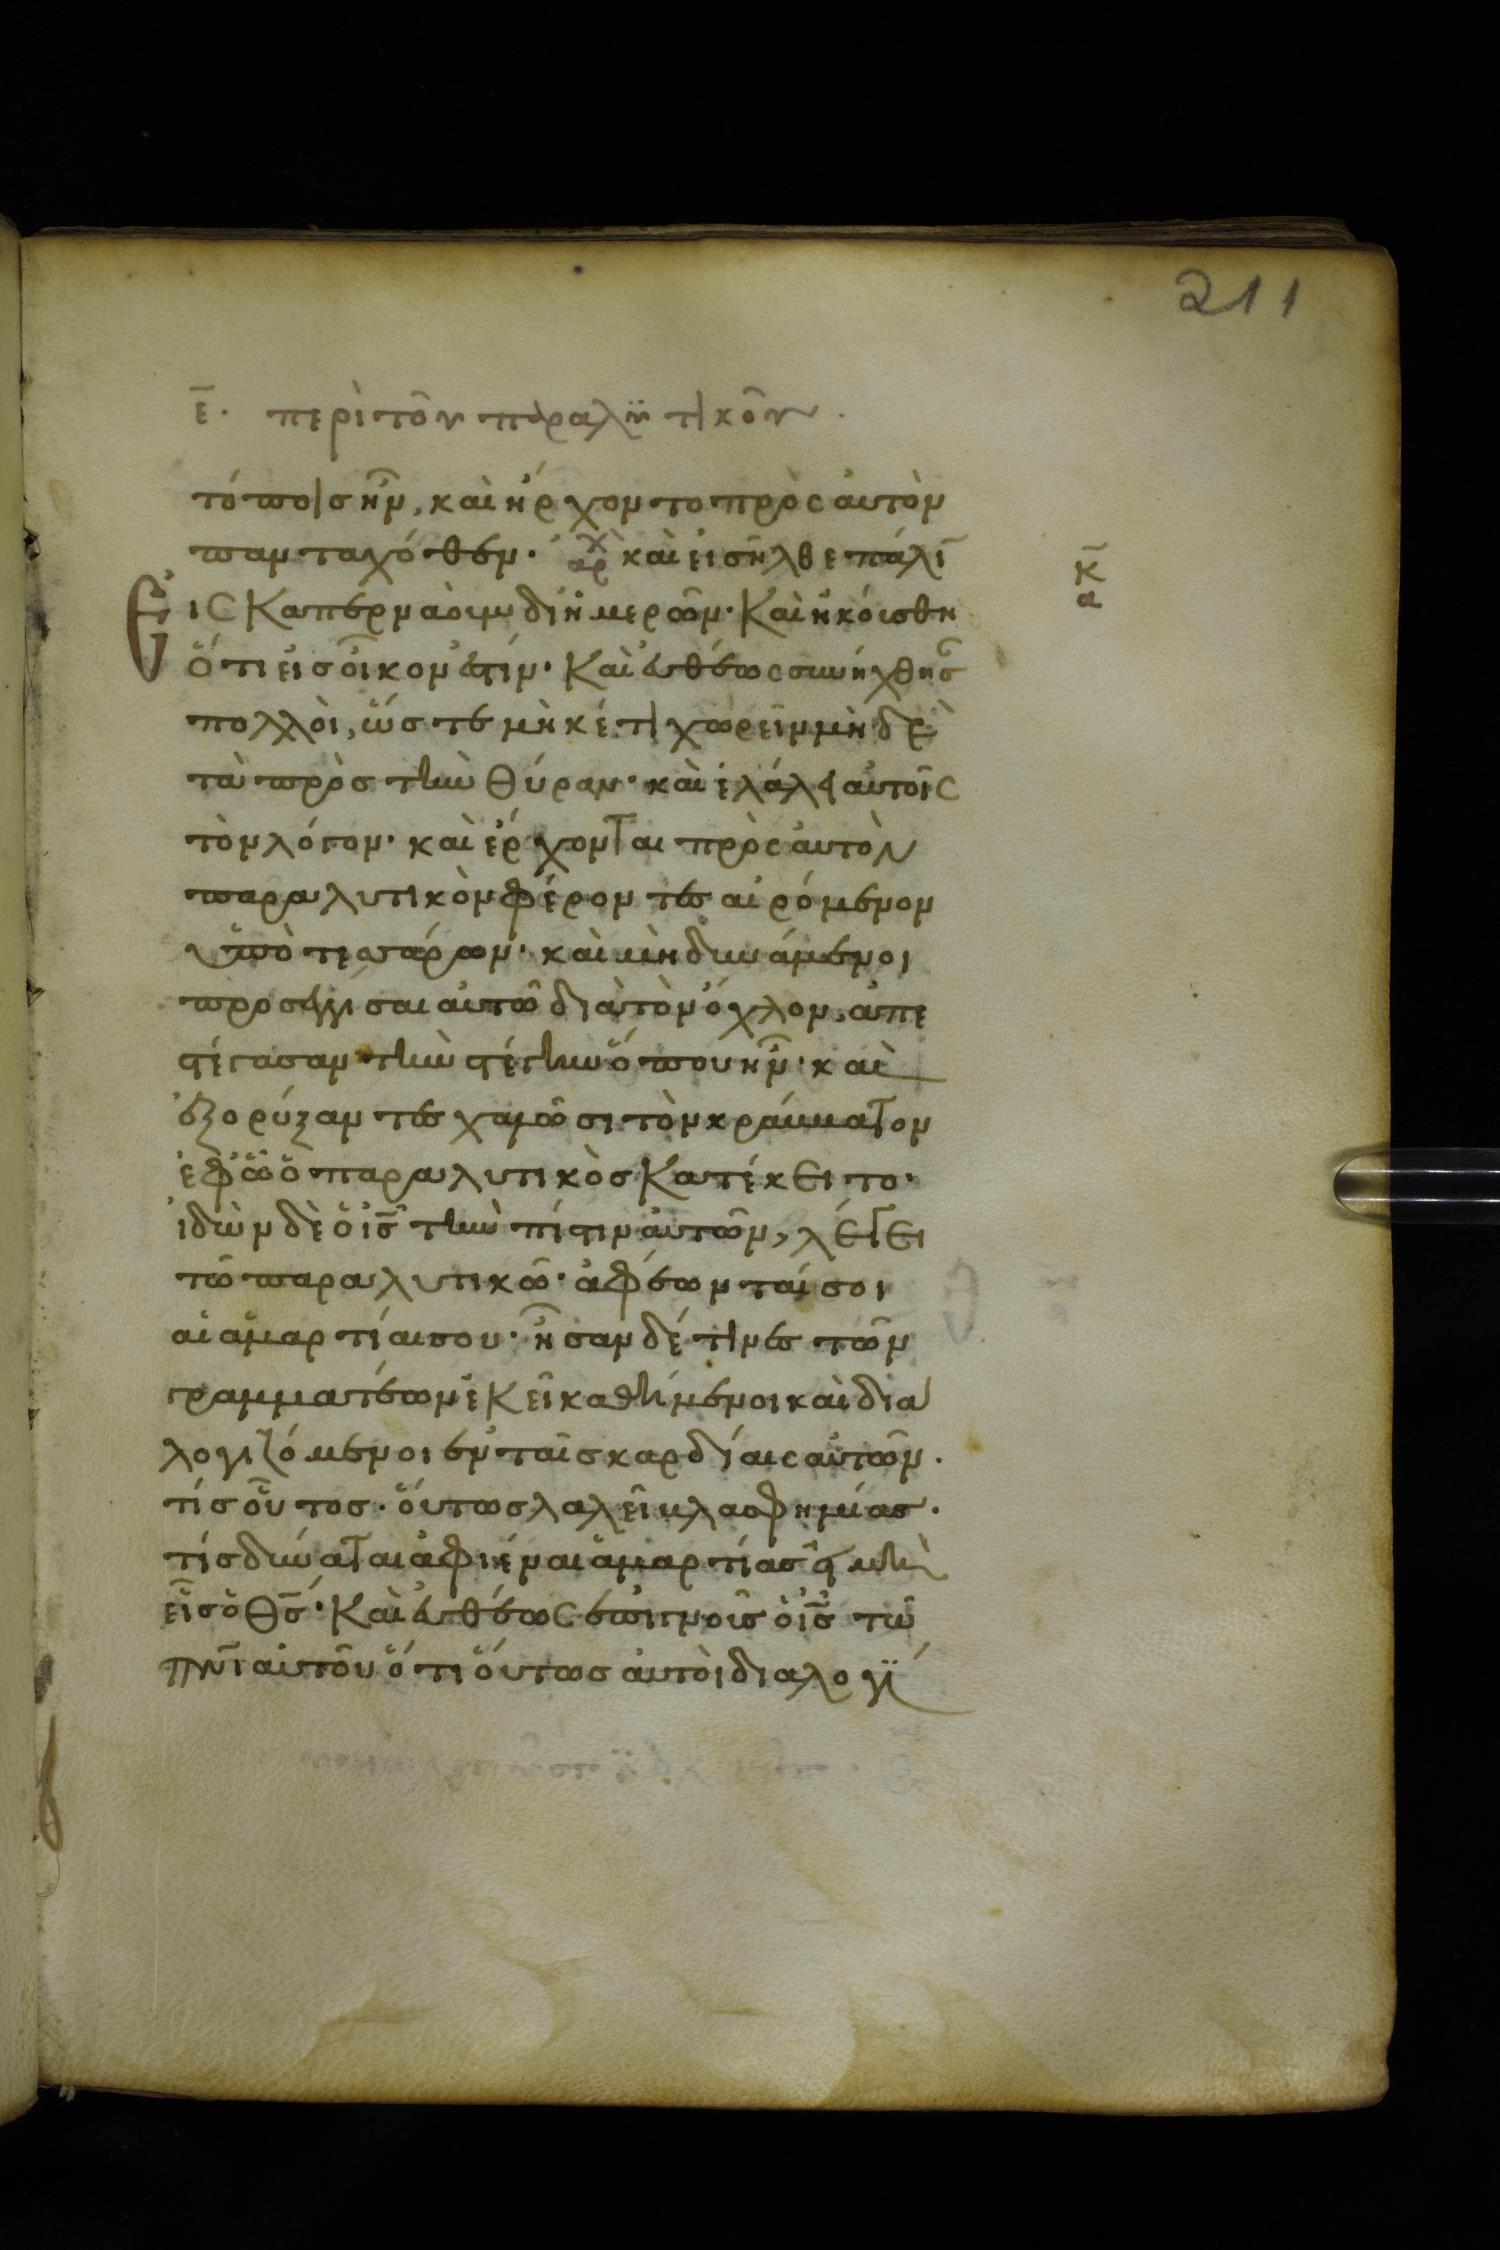 211
ε̅. περὶ τοῦ παραλϋτικοῦ.
τόποις ἦν, καὶ ἤρχοντο πρὸς ἀυτὸν
πανταχόθεν. αρχ καὶ ἐισῆλθε πάλῑ
κ̅
α
Ἐις Καπερναοὺμ δἰ ἡμερῶν. Καὶ ἠκόυσθη
ὅτι ἐις οἶκον ἐστίν. Καὶ ἐυθέως συνήχθησ
πολλὸι, ὥστε μὴκέτι χωρεῖν μὴδὲ
τὰ πρὸς τὴν θύραν. καὶ ἐλάλει αὐτοῖς
τὸν λόγον. καὶ ἐρχονται πρὸς ἀυτὸν
παραλυτικὸν φέροντες αἰρόμενον
ὑπὸ τεσσάρων. καὶ μὴ δυνάμενοι
προσεγγίσαι αὐτῶ διὰ τὸν ὄχλον, ἀπε
στέγασαν τὴν στέγην ὅπου ἦν. καὶ
ἐξορύξαντες χαλῶσι τὸν κράββατον
ἐφ ὧ ὁ παραλυτικὸς Κατέκειτο.
ἰδὼν δὲ ὁ ι̅ς̅ τὴν πίστιν ἀυτῶν, λέγει
τῶ παραλυτικῶ. ἀφέωνταί σοι
αἱ ἁμαρτίαι σου. ἦσαν δέ τινες τῶν
γραμματέων ἐΚεῖ καθήμενοι καὶ δια
λογιζόμενοι ἐν ταῖς καρδίαις αὐτῶν.
τίς οὗτος. ὅυτως λαλεῖ βλασφημίας.
τίς δύναται ἀφιέναι ἁμαρτίας εἰ μὴ
εἷς ὁ θ̅ς̅. Καὶ ἐυθέως ἐπιγνοὺς ὁ ι̅ς̅ τῶ
π̅ν̅ι̅ αὑτοῦ ὅτι ὅυτως ἀυτὸι διαλογί